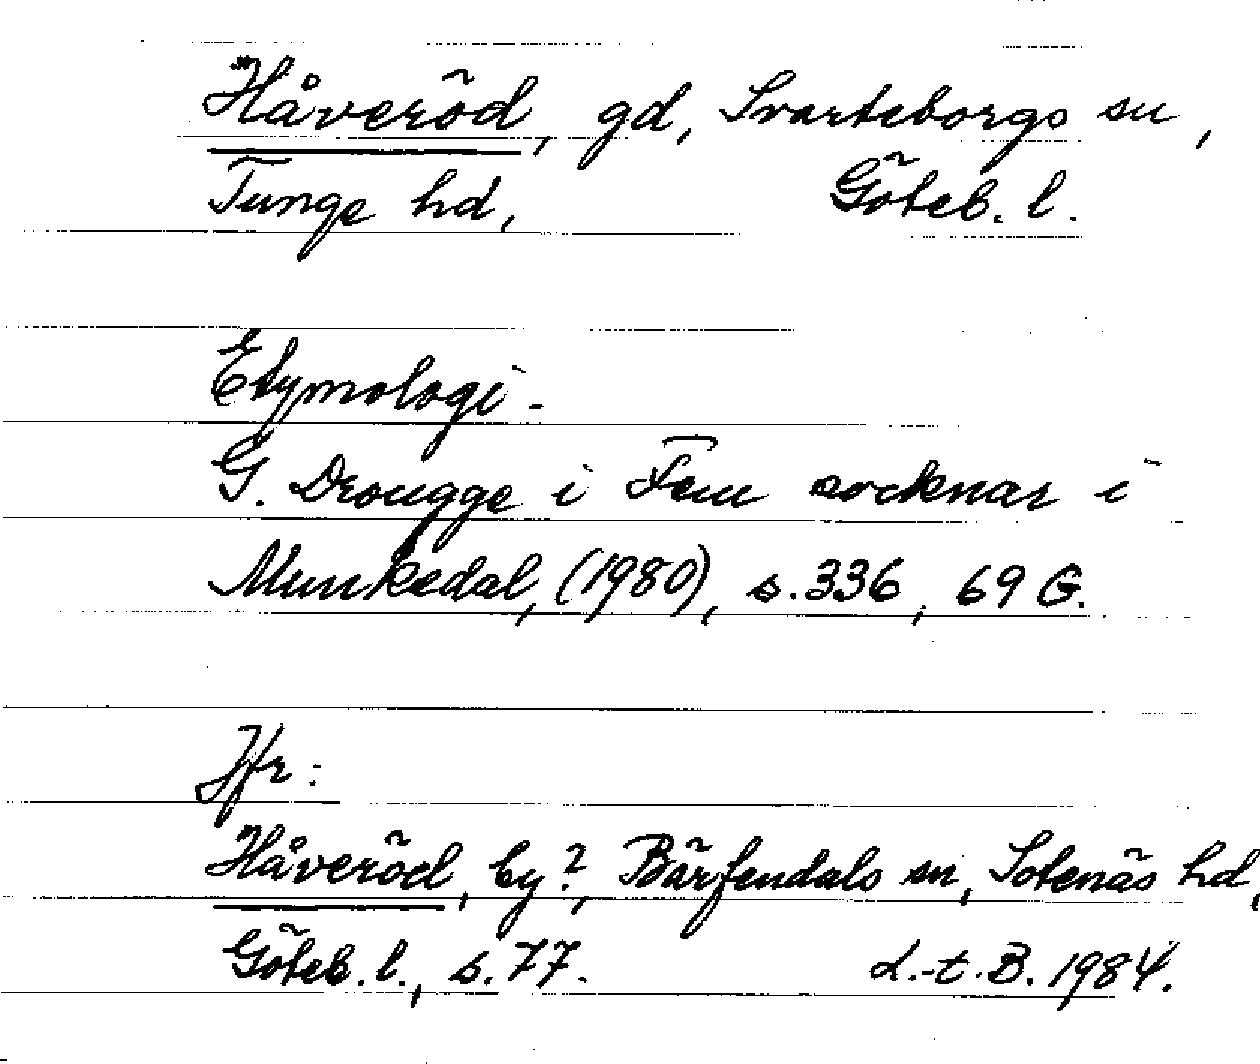 "Håveröd, gd, Svarteborgs sn,
Tunge hd, Göteb. l.
Etymologi.
G. Drougge i Fem socknar i
Munkedal, (1980), s. 336, 69 G.
Jfr:
"Håveröd, by?, Bärfendals sn, Sotenäs hd,
Göteb. l., s. 77. L.-t. B. 1984.